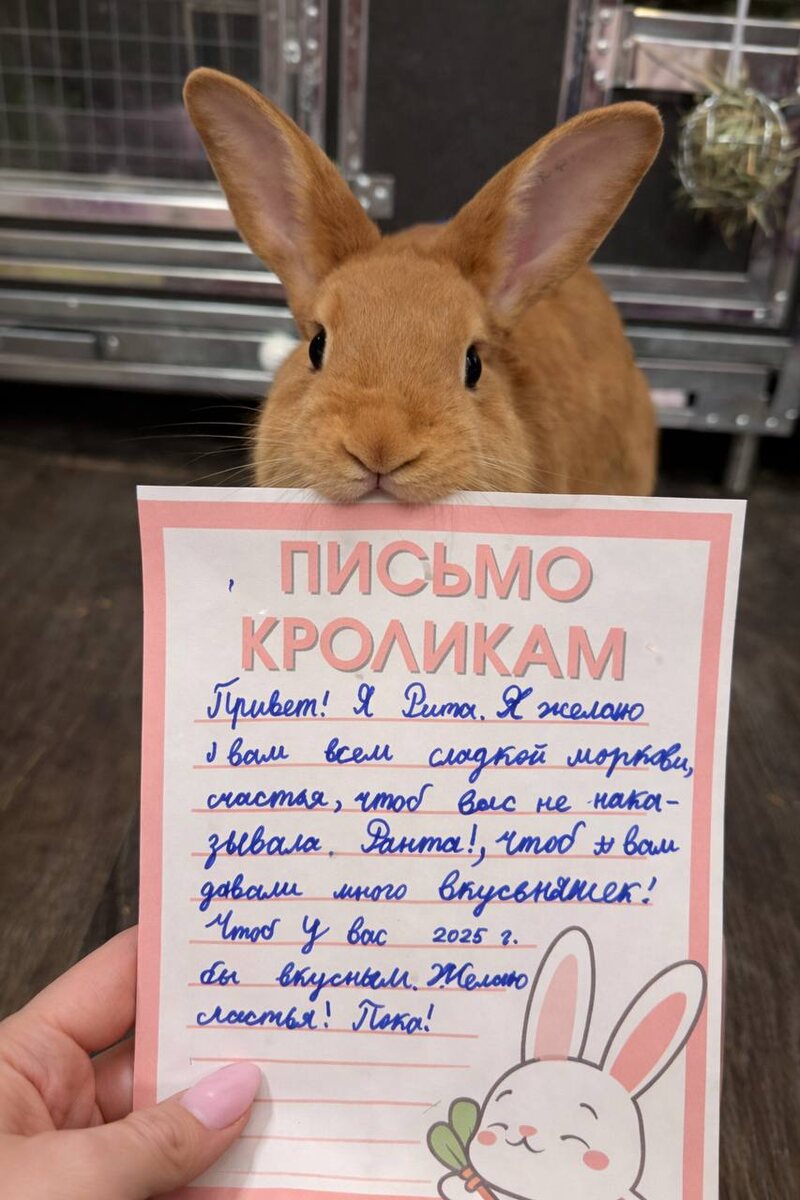 ПИСЬМО
КРОЛИКАМ
Привет! Я Рита. Я желаю
вам всем сладкой моркови,
счастья, чтоб вас не нака-
зывала. Ранта!, чтоб вам
давали много вкусьняшек!
Чтоб у вас 2025 г.
бы вкусным. Желаю
счастья! Пока!